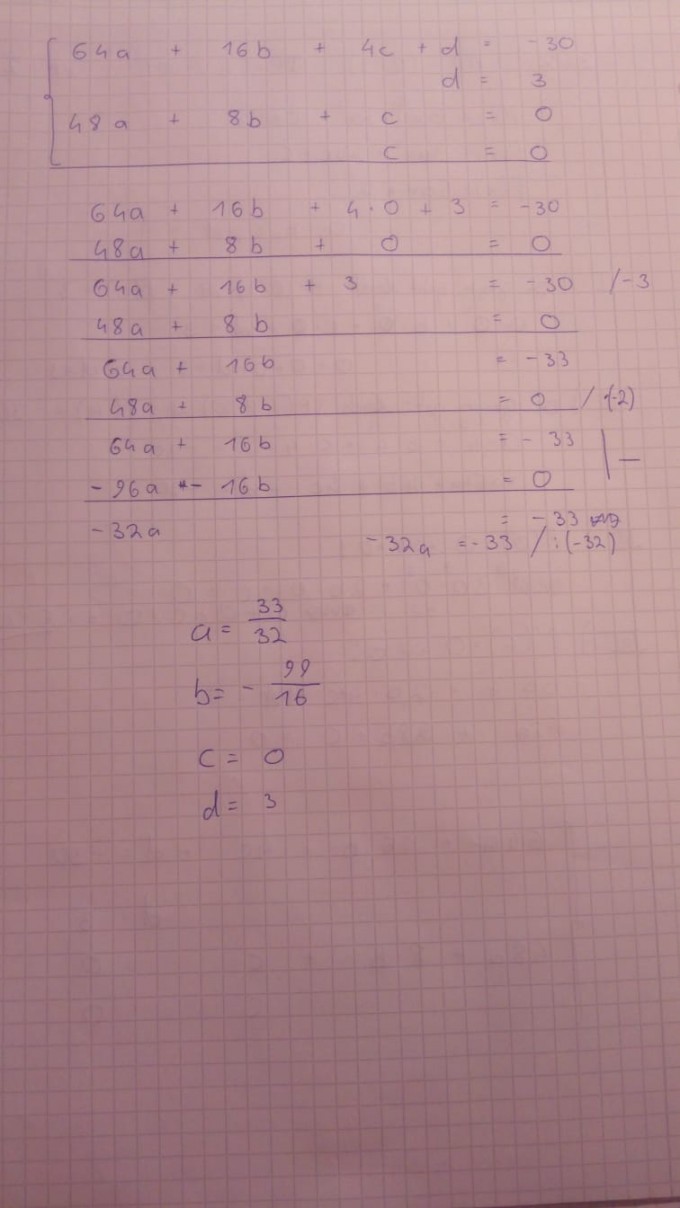 64a + 16b + 4c + d = -30
d = 3
48a + 8b + c = 0
c = 0
64a + 16b + 4·0 + 3 = -30
48a + 8b + 0 = 0
64a + 16b + 3 = -30 /-3
48a + 8b = 0
64a + 16b = -33
48a + 8b = 0 / ·(-2)
64a + 16b = -33
-96a - 16b = 0 | —
-32a = -33
-32a = -33 / :(-32)
a = 33/32
b = - 99/16
c = 0
d = 3